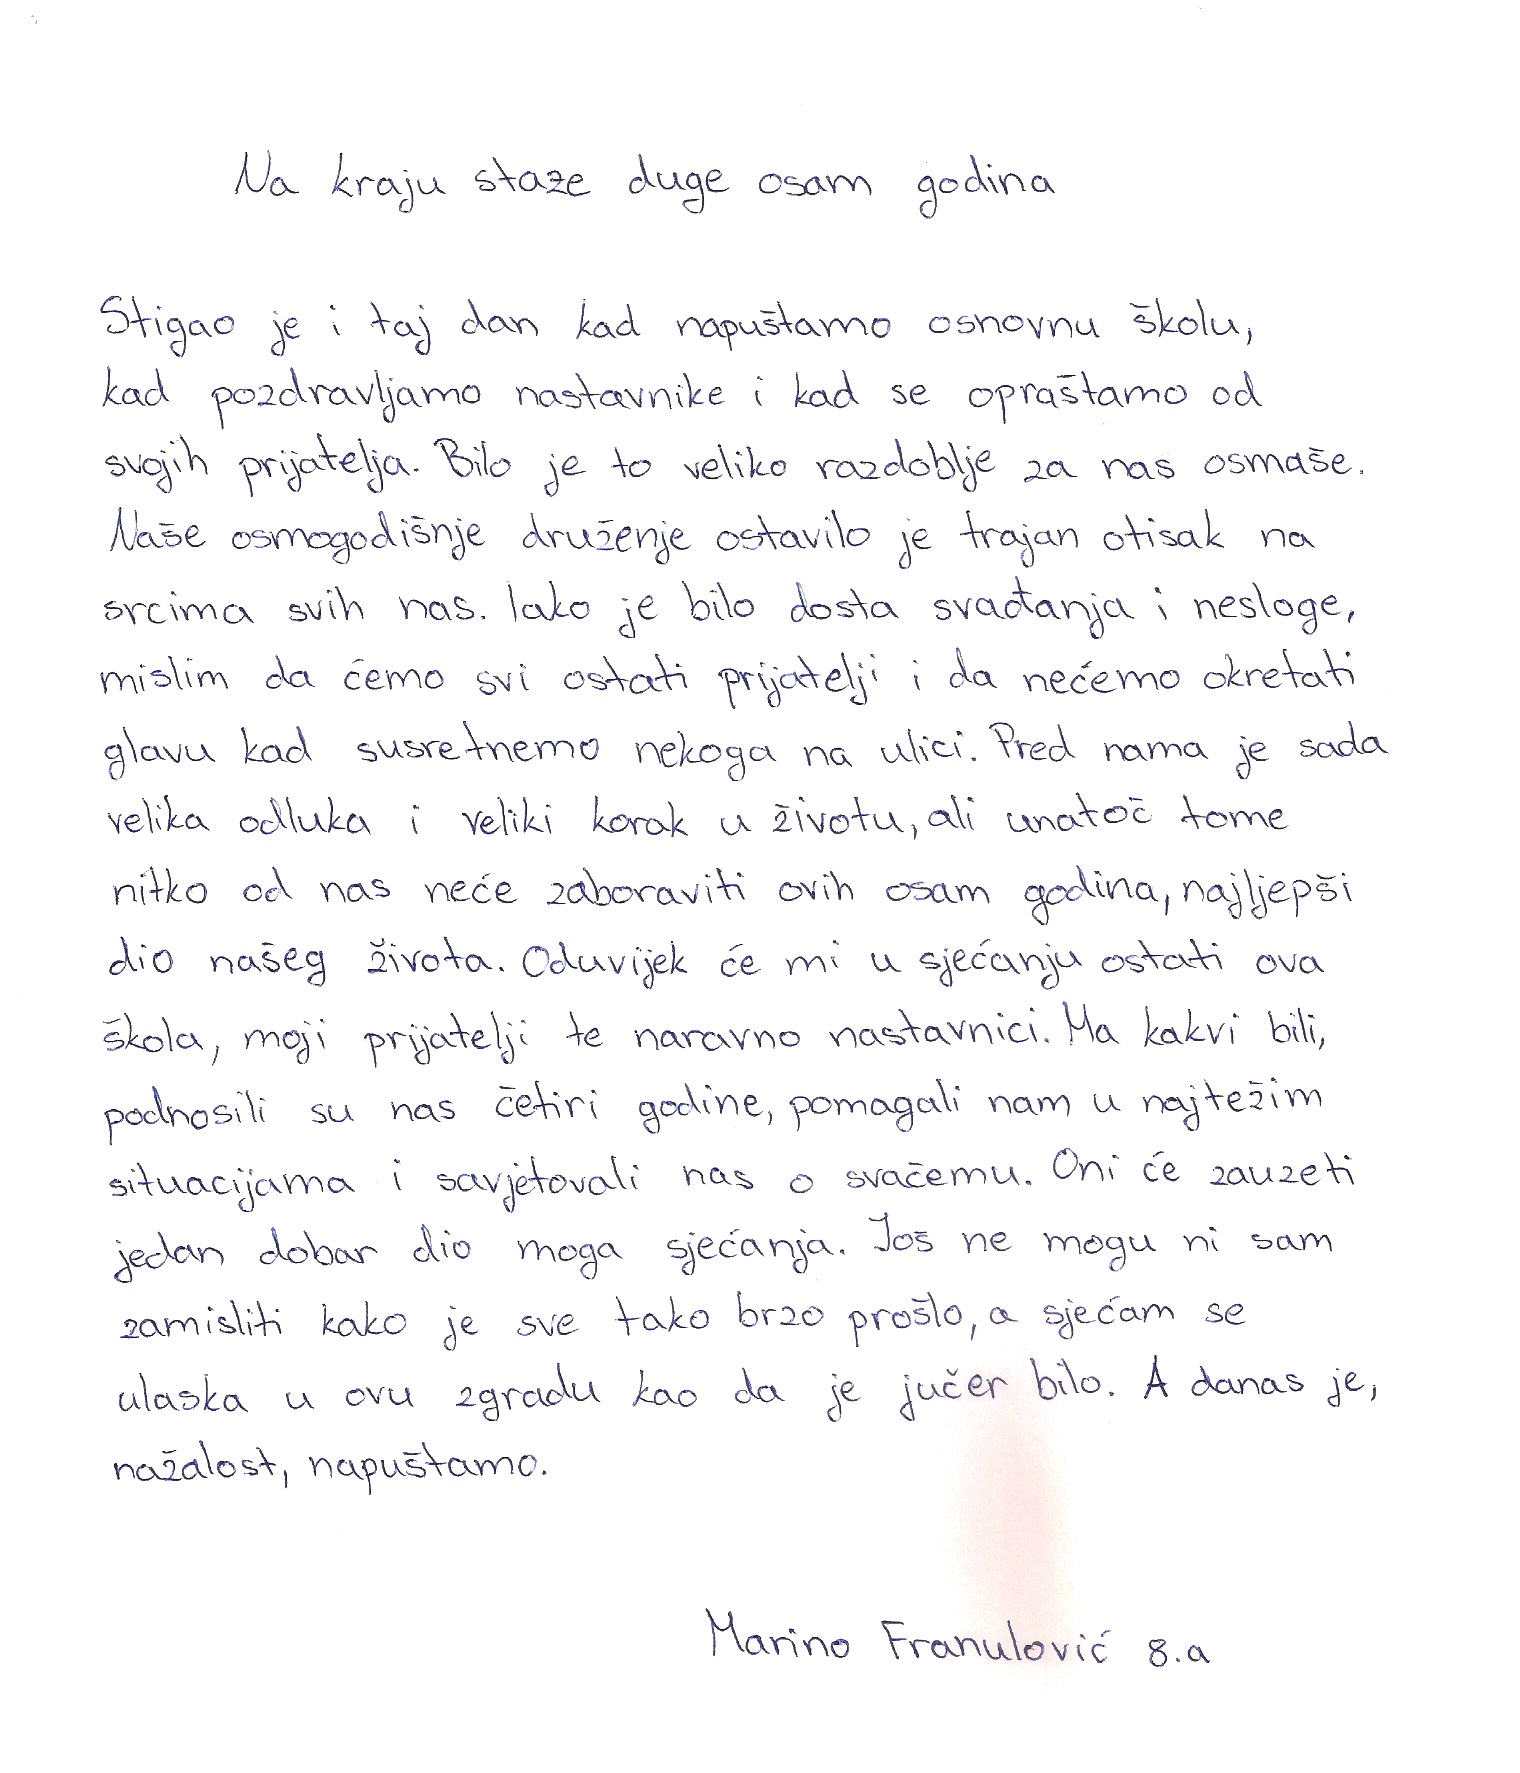 Na kraju staze duge osam godina
Stigao je i taj dan kad napuštamo osnovnu školu,
kad pozdravljamo nastavnike i kad se opraštamo od
svojih prijatelja. Bilo je to veliko razdoblje za nas osmaše.
Naše osmogodišnje druženje ostavilo je trajan otisak na
srcima svih nas. Iako je bilo dosta svađanja i nesloge,
mislim da ćemo svi ostati prijatelji i da nećemo okretati
glavu kad susretnemo nekoga na ulici. Pred nama je sada
velika odluka i veliki korak u životu, ali unatoč tome
nitko od nas neće zaboraviti ovih osam godina, najljepši
dio našeg života. Oduvijek će mi u sjećanju ostati ova
škola, moji prijatelji te naravno nastavnici. Ma kakvi bili,
podnosili su nas četiri godine, pomagali nam u najtežim
situacijama i savjetovali nas o svačemu. Oni će zauzeti
jedan dobar dio moga sjećanja. Još ne mogu ni sam
zamisliti kako je sve tako brzo prošlo, a sjećam se
ulaska u ovu zgradu kao da je jučer bilo. A danas je,
nažalost, napuštamo.
Marino Franulović 8.a